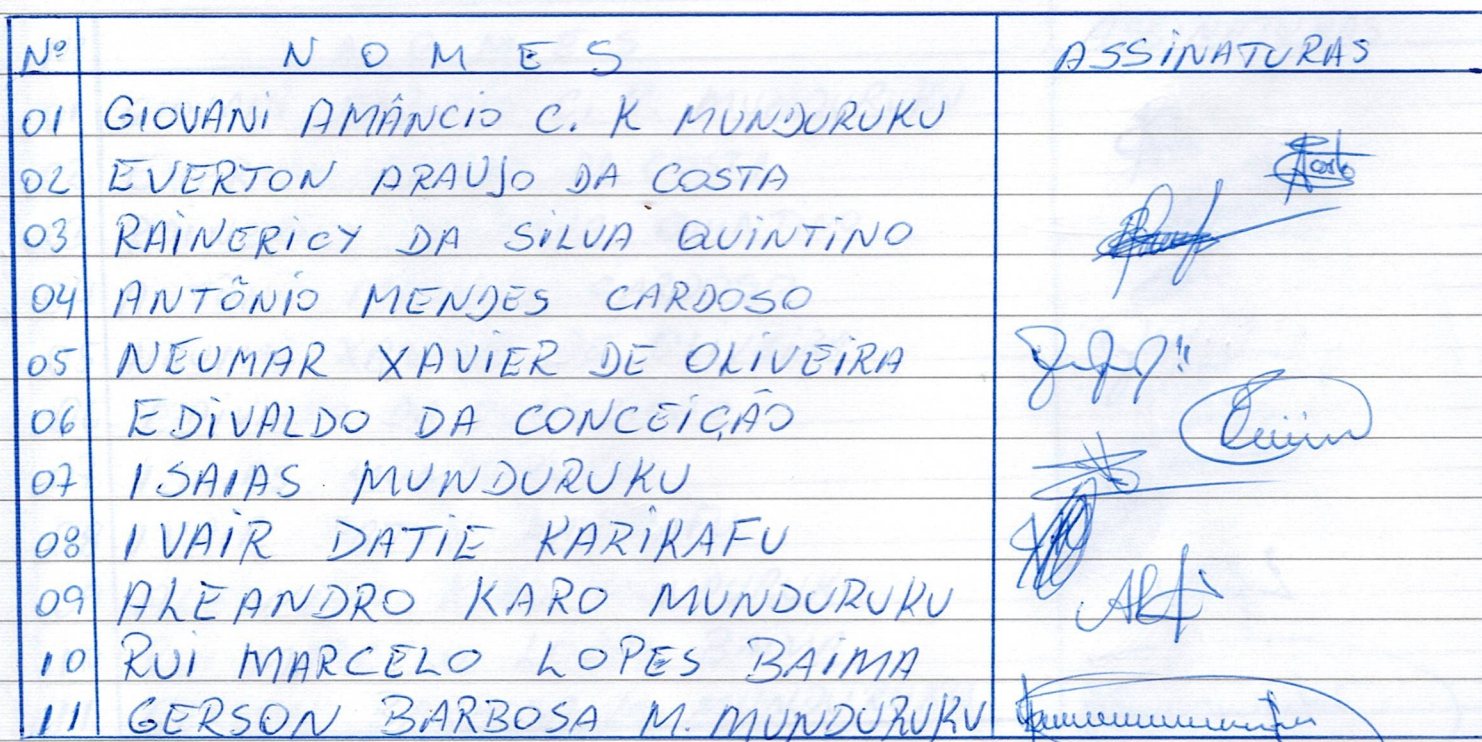 Nº NOMES ASSINATURAS
01 GIOVANI AMÂNCIO C. K MUNDURUKU
02 EVERTON ARAUJO DA COSTA
03 RAINERICY DA SILVA QUINTINO
04 ANTÔNIO MENDES CARDOSO
05 NEUMAR XAVIER DE OLIVEIRA
06 EDIVALDO DA CONCEIÇÃO
07 ISAIAS MUNDURUKU
08 IVAIR DATIE KARIRAFU
09 ALEANDRO KARO MUNDURUKU
10 RUI MARCELO LOPES BAIMA
11 GERSON BARBOSA M. MUNDURUKU